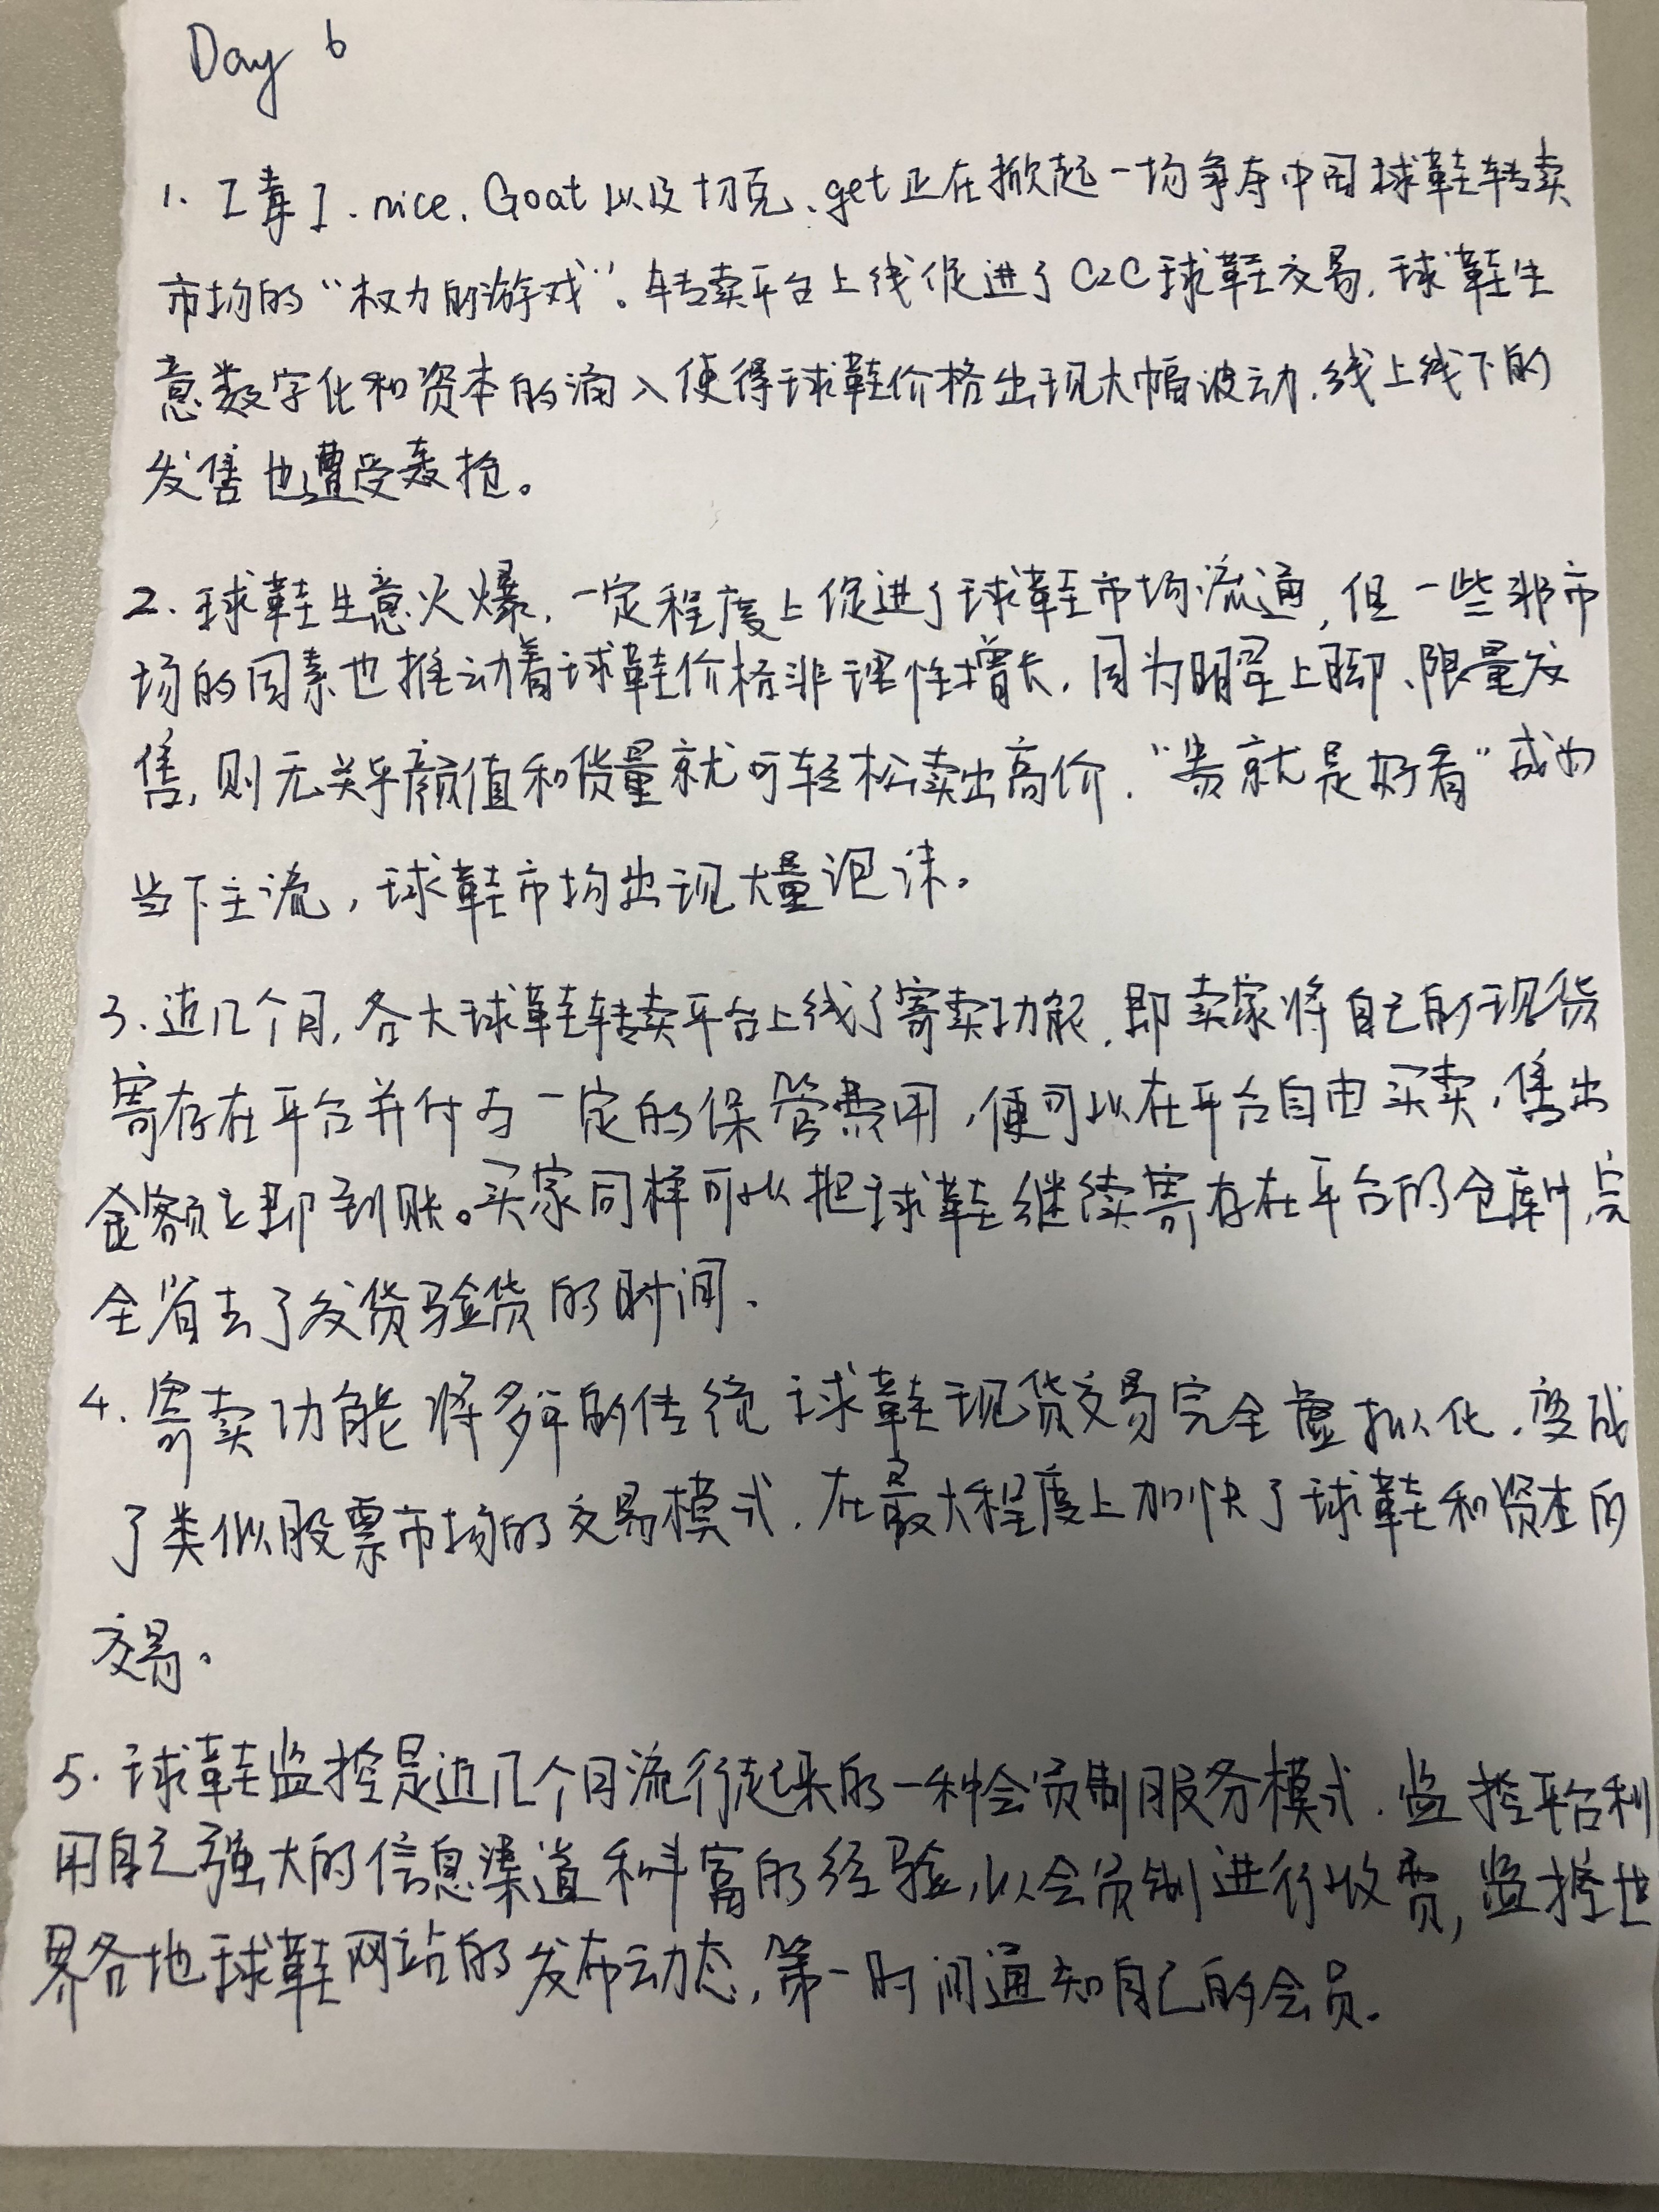 Day 6
1. [毒]、nice、Goat以及切克、get正在掀起一场争夺中国球鞋转卖
市场的“权力的游戏”。转卖平台上线促进了C2C球鞋交易,球鞋生
意数字化和资本的涌入使得球鞋价格出现大幅波动,线上线下的
发售也遭受轰抢。
2. 球鞋生意火爆,一定程度上促进了球鞋市场流通,但一些非市
场的因素也推动着球鞋价格非理性增长,因为明星上脚、限量发
售,则无关乎颜值和货量就可轻松卖出高价,“贵就是好看”成为
当下主流,球鞋市场出现大量泡沫。
3. 近几个月,各大球鞋转卖平台上线了寄卖功能,即卖家将自己的现货
寄存在平台并付与一定的保管费用,便可以在平台自由买卖,售出
金额立即到账。买家同样可以把球鞋继续寄存在平台的仓库中,完
全省去了发货验货的时间.
4. 寄卖功能将多年的传统球鞋现货交易完全虚拟化,变成
了类似股票市场的交易模式,在最大程度上加快了球鞋和资本的
交易。
5. 球鞋监控是近几个月流行起来的一种会员制服务模式.监控平台利
用自己强大的信息渠道和丰富的经验,以会员制进行收费,监控世
界各地球鞋网站的发布动态,第一时间通知自己的会员.